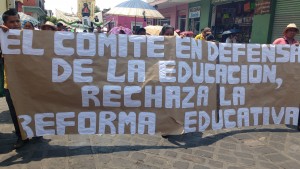 EL COMITE EN DEFENSA
DE LA EDUCACIÓN,
RECHAZA LA
REFORMA EDUCATIVA